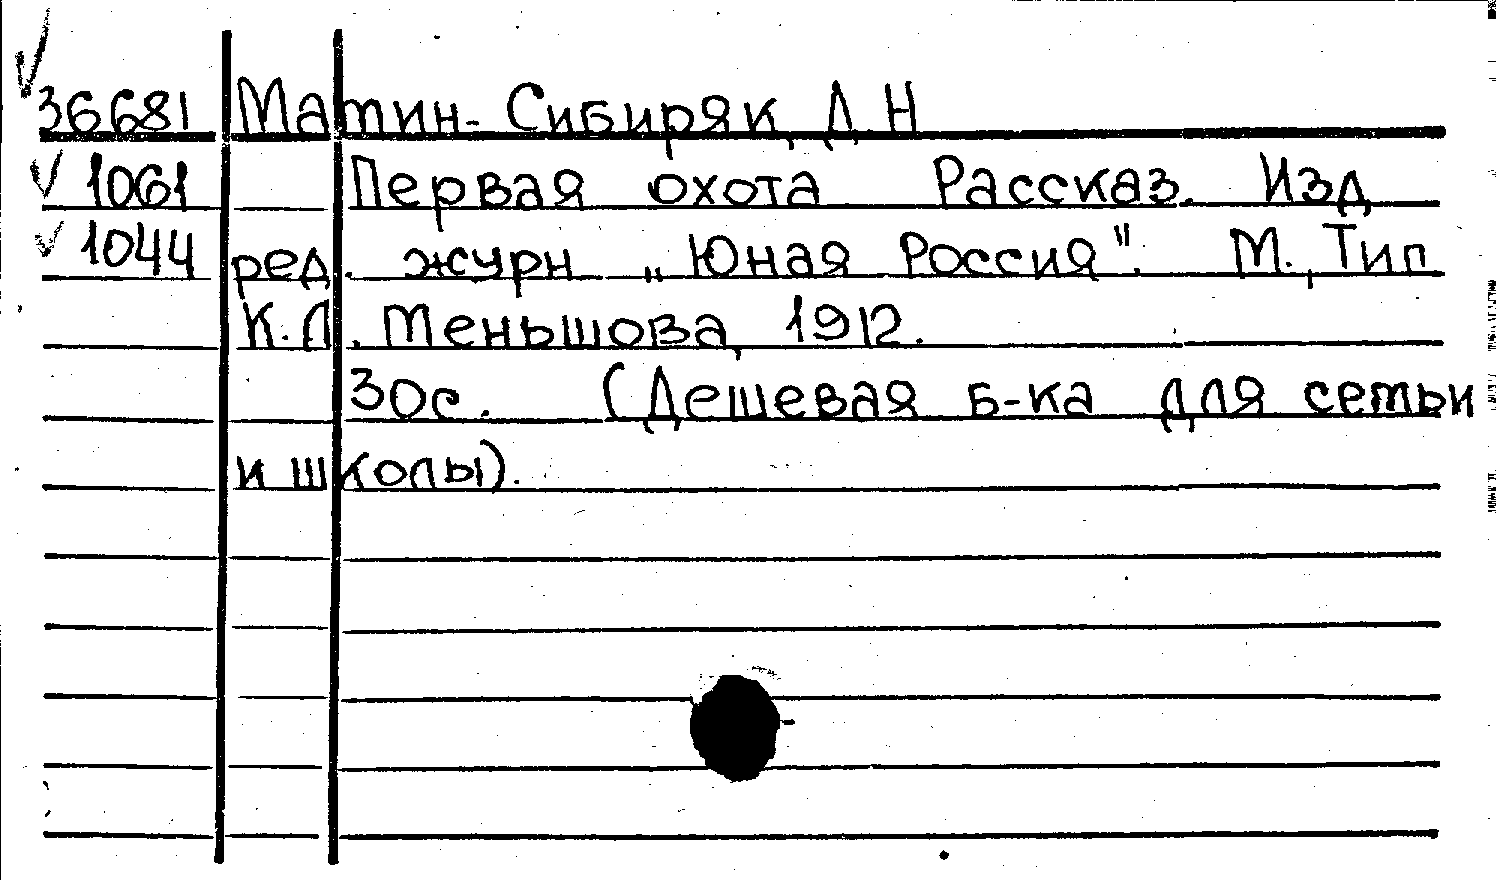 36681 Матин-Сибиряк, Д Н
1061 Первая охота Рассказ. Изд
1044 ред. журн „Юная Россия". М., Тип
К.Л. Меньшова, 1912.
30с. (Дешевая б-ка для сетьи
и школы).